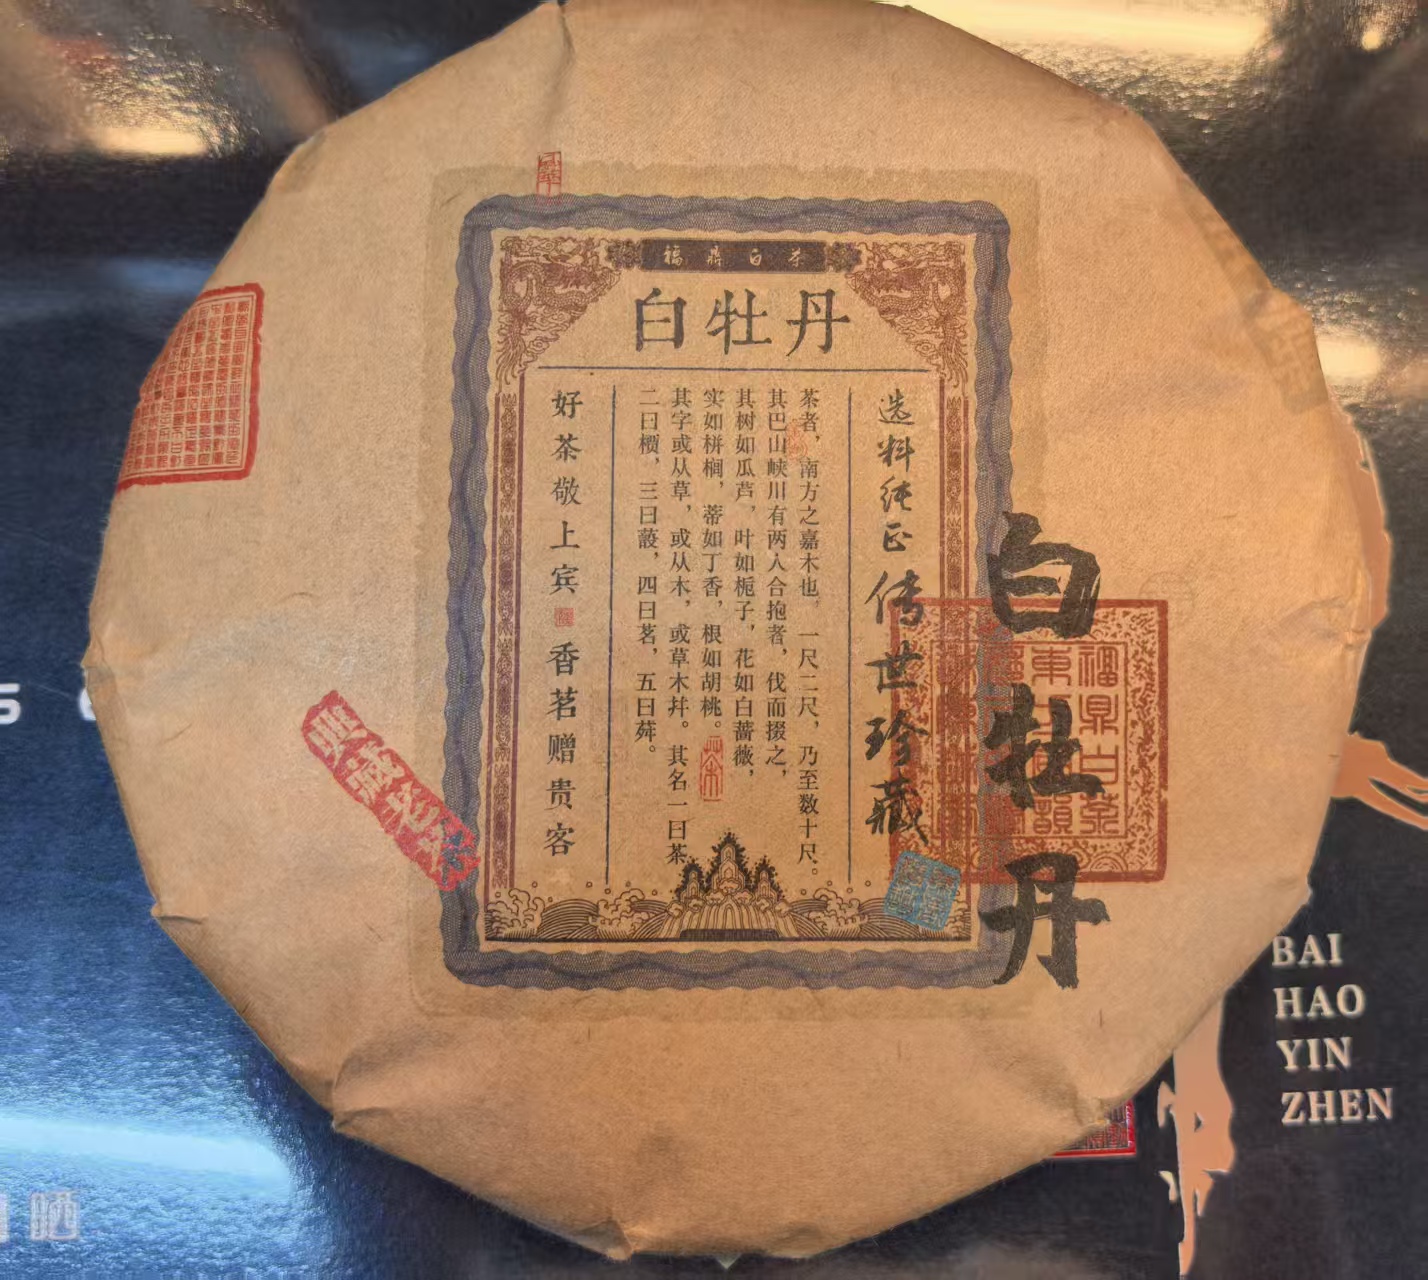 福鼎白茶
白牡丹
选料纯正传世珍藏
茶者，南方之嘉木也，一尺二尺，乃至数十尺。
其巴山峡川有两人合抱者，伐而掇之，
其树如瓜芦，叶如栀子，花如白蔷薇，
实如栟榈，蒂如丁香，根如胡桃。
其字或从草，或从木，或草木并。其名一曰茶
二曰槚，三曰蔎，四曰茗，五曰荈。
好茶敬上宾 香茗赠贵客
白牡丹
福鼎白茶
茶
BAI
HAO
YIN
ZHEN
晒